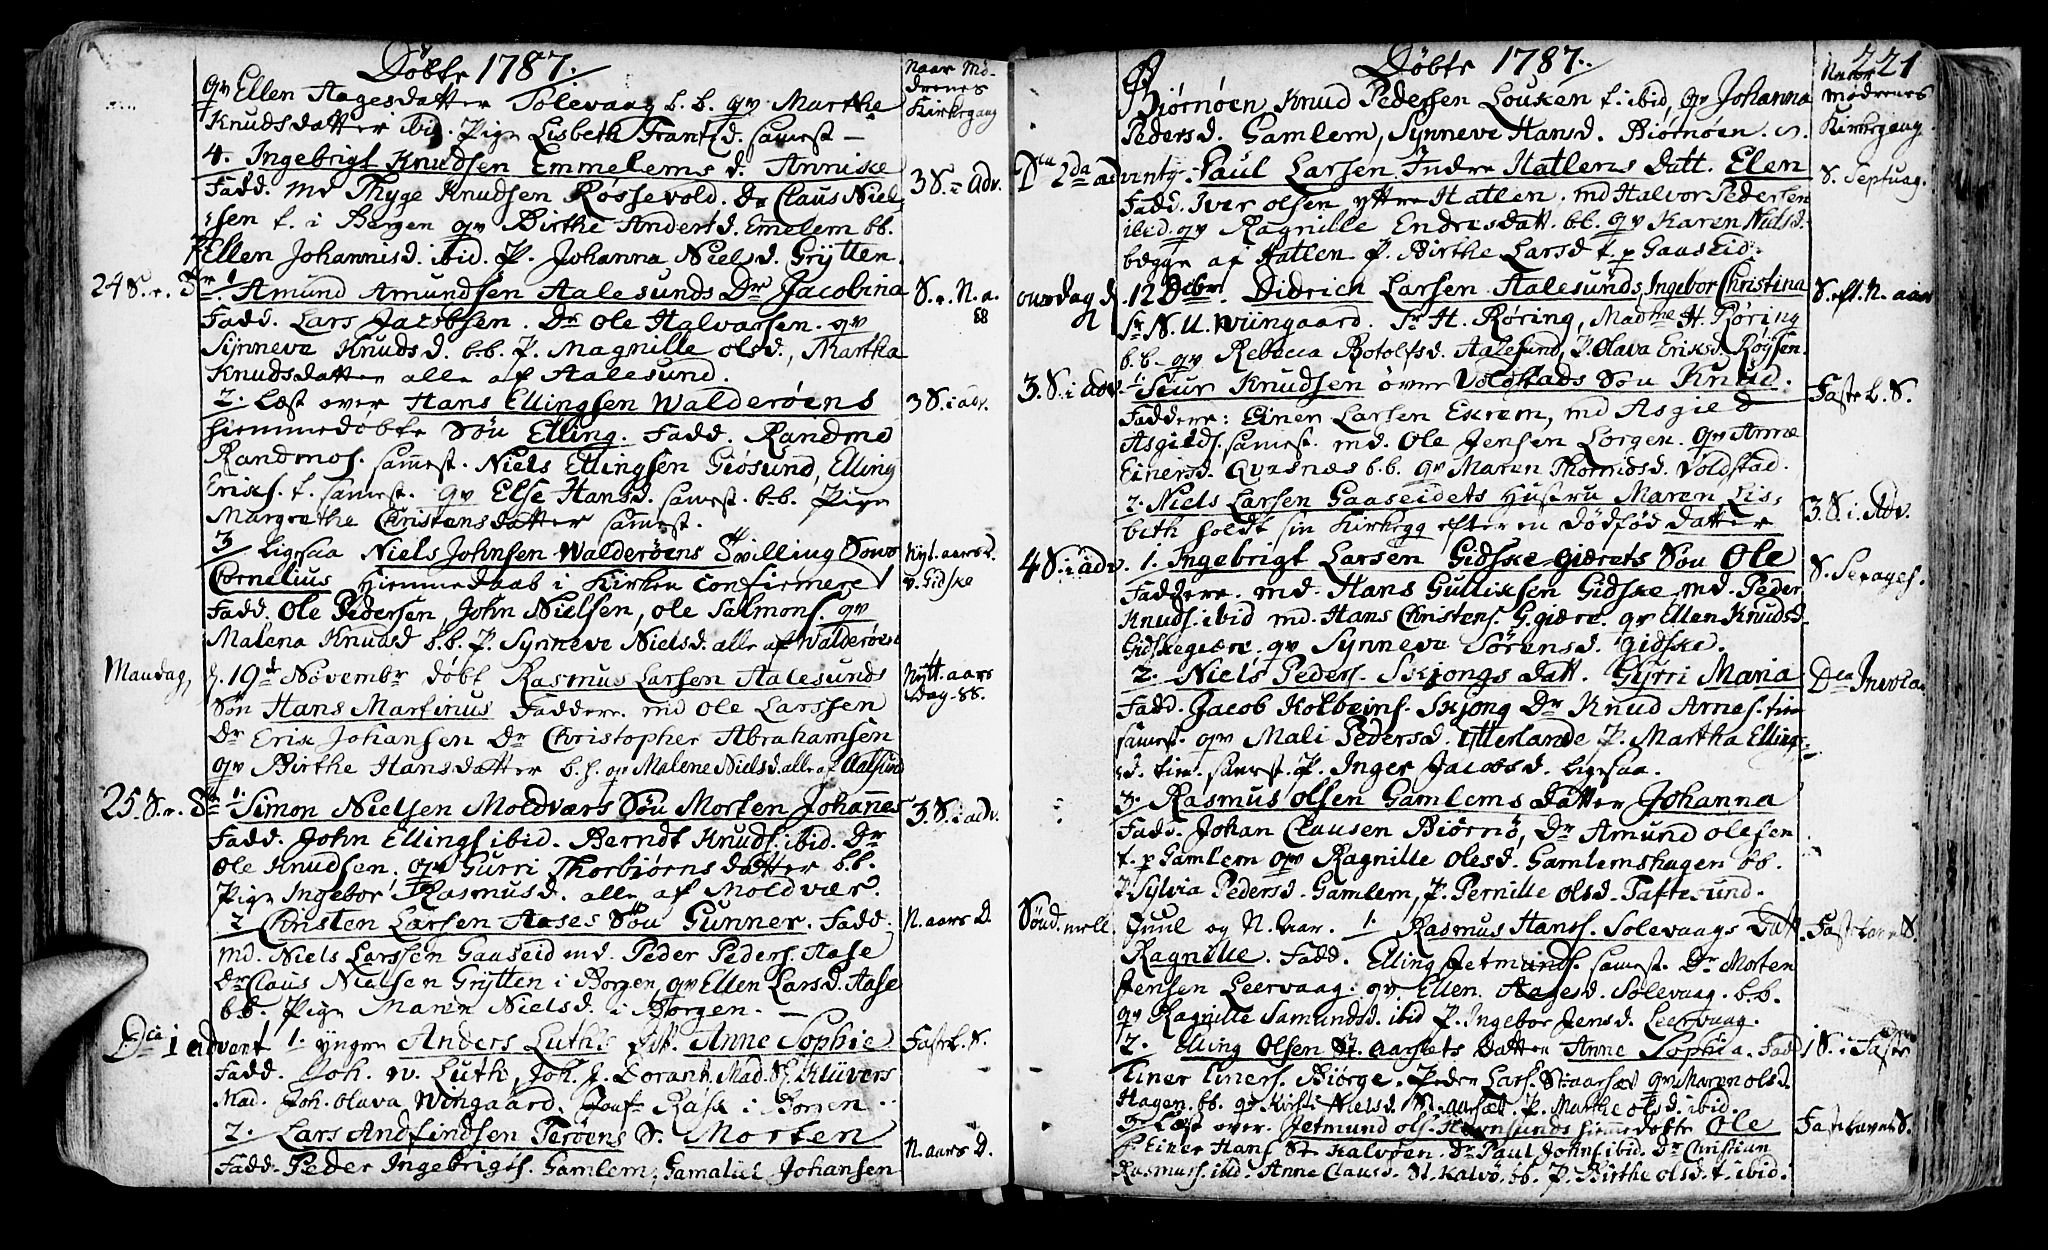 Döbte 1787.
Naar Mö-
drenes
Kirkegang
qv Ellen Aagesdatter Solevaag b.b. qv. Marthe
Knudsdatter ibid. Pige Lisbeth Frantzd. samest —
4. Ingebrigt Knudsen Emmelems d. Annike
3 S. i Adv.
Fadd. md Thyge Knudsen Røssevold. Dr Claus Niel-
sen t. i Borgen qv Birthe Andersd. Emelem bb.
P. Ellen Johannisd. ibid. P. Johanna Nielsd. Grÿtten.
24 S. e. Tr. 1. Amund Amundsen Aalesunds Dr Jacobina
S. e. N. a.
88
Fadd. Lars Jacobsen. Dr Ole Halvarsen. qv
Sÿnneve Knudsd. b.b. P. Magnille olsd., Martha
Knudsdatter alle af Aalesund.
2. Læst over Hans Ellingsen Walderøens
3 S. i adv.
hiemmedøbte Søn Elling. Fadd. Randmo
Randmos. samest. Niels Ellingsen Giøsund, Elling
Eriks. t. samest. qv Else Hansd. samest. b.b. Pige
Margrethe Christensdatter samest.
3 Ligesaa Niels Johnsen Walderøens Tvilling Søns
Nyt. aars D.
v. Gidske
Cornelius hiemmedaab i Kirken confirmeret
Fadd. Ole Pedersen, John Nielsen, Ole Salmons. qv
Malena Knudsd b.b. P. Synneve Nielsd. alle af Walderøen
Mandag, d. 19d Novembr døbt Rasmus Larsen Aalesunds
Nytt. aars
dag. 88.
Søn Hans Martinus Faddere. md Ole Larssen
Dr Erik Johansen Dr Christopher Abrahamsen
qv Birthe Hansdatter b.h. qv Malene Nielsd. alle af Aalsund
25 S. e. Tr. 1. Simon Nielsen Moldværs Søn Morten Johannes
3. S. i adv.
Fadd. John Ellings ibid. Berndt Knuds. ibid. Dr
Ole Knudsen. qv Gurri Thorbiørnsdatter b.b.
Pige Ingebor Rasmusd. alle af Moldvær.
2 Christen Larsen Aases Søn Gunner. Fadd.
N. aars D.
md. Niels Larssen Gaaseid md. Peder Peders. Aase
Dr Claus Nielsen Grÿtten i Borgen, qv Ellen Larsd. Aase
b.b. Pige Maren Nielsd. i Borgen. —
Dca 1 advent 1. yngre Anders Luths Dr. Anne Sophie
Fastel. S.
Fadd. Joh. W. Luth, Joh. J. Dorant, Mad. Sl. Klüvers
Mad. Joh. Olava Wingaard. Jomfr Rask i Borgen
2. Lars Andfindsen Terøens S. Morten
N. aars D.
Fadd. Peder Ingebrigts. Gamlem, Gamaliel Johansen
Döbte 1787.
221
Naar
Mødrenes
Kirkegang.
Biørnøen Knud Pedersen Louken t. ibid, qv Johanna
Pedersd. Gamlem, Synneve Hansd. Biørnøen
Dca 2da adventg. Paul Larsen Indre Hatlens Datt. Elen
S. Septuag.
Fadd. Iver Olsen yttre Hatlen. md Halvor Pedersen
ibid. qv Ragnille Endresdatt. bb. qv Karen Nielsd.
begge af Hatlen P. Birthe Larsd t. p Gaaseid.
onsdag d. 12 Decbr. Didrich Larsen Aalesunds, Ingebor Christina
S. eft. N. aar
Sr N. U. Wiingaard. Sr H. Røring, Madme H. Røring
b.b. qv Rebecca Botolfsd. Aalesund, P. Olava Eriksd. Røÿsen.
3. S. i adv. 1. Siur Knudsen över Voldstads Søn Knud.
Fastel. S.
Faddere: Einer Larsen Ekrem, md Asgield
Asgields. samest. md. Ole Jensen Lorgen. qv Anne
Einersd. Qvasnæs b.b. qv Maren Thornidsd. Voldstad.
2. Niels Larsen Gaaseidets Hustru Maren Lis-
3. S. i Adv.
beth holdt sin Kirkegg efter en Dødfød datter
4 S. i adv. 1. Ingebrigt Larsen Gidske giærets Søn Ole
S. Sexages.
Faddere. md. Hans Gulliksen Gidske md. Peder
Knuds. ibid md. Hans Christens. G. giære. qv Ellen Knudsd.
Gidskegiære. qv Synneve Sørensd. Gidske.
2. Niels Peders. Skjongs Datt. Gÿrri Maria
Dca Invoca.
Fadd. Jacob Kolbeins. Skjong Dr Knud Arnes. tien
samest. qv Mali Pedersd. Ytterlande P. Martha Elling-
sd. tien. samest. P. Inger Jacobsd. Ligesaa.
3. Rasmus Olsen Gamlems Datter Johanna
Fadd. Johan Clausen Biørnø, Dr Amund Olesen
t. p Gamlem qv Ragnille Olesd. Gamlemshagen bb.
P. Sylvia Pedersd. Gamlem, P. Pernille Olsd. Taftesund.
Sønd. mell. Juul og N. Aar. 1. Rasmus Hanss. Solevaags Datt.
Fastelavns S.
Ragnille. Fadd. Elling Jetmunds. samest. Dr Morten
Jensen Leervaag. qv. Ellen Aagesd. Solevaag. b.b.
qv Ragnille Samundsd. ibid P. Ingebor Jensd. Leervaag.
2. Elling Olsen St. Aarsets Datter Anne Sophia. Fadd
1 S. i Faste
Einer Einers. Biørge. Peder Lars. St. aarset qv Maren Olsd.
Hagen. bb. qv Kirsti Nielsd. St. aarsæt P. Marthe Olsd. ibid.
3. Læst over. Jetmund Ols. hiemmedøbte Ole
Fastelavns S.
F. Einer Hans St. Kalvøen. Dr Paul Johns ibid. Dr Christian
Rasmuss. ibid. Anne Clausd. St. Kalvø. bb. P. Birthe Olsd. t. ibid.